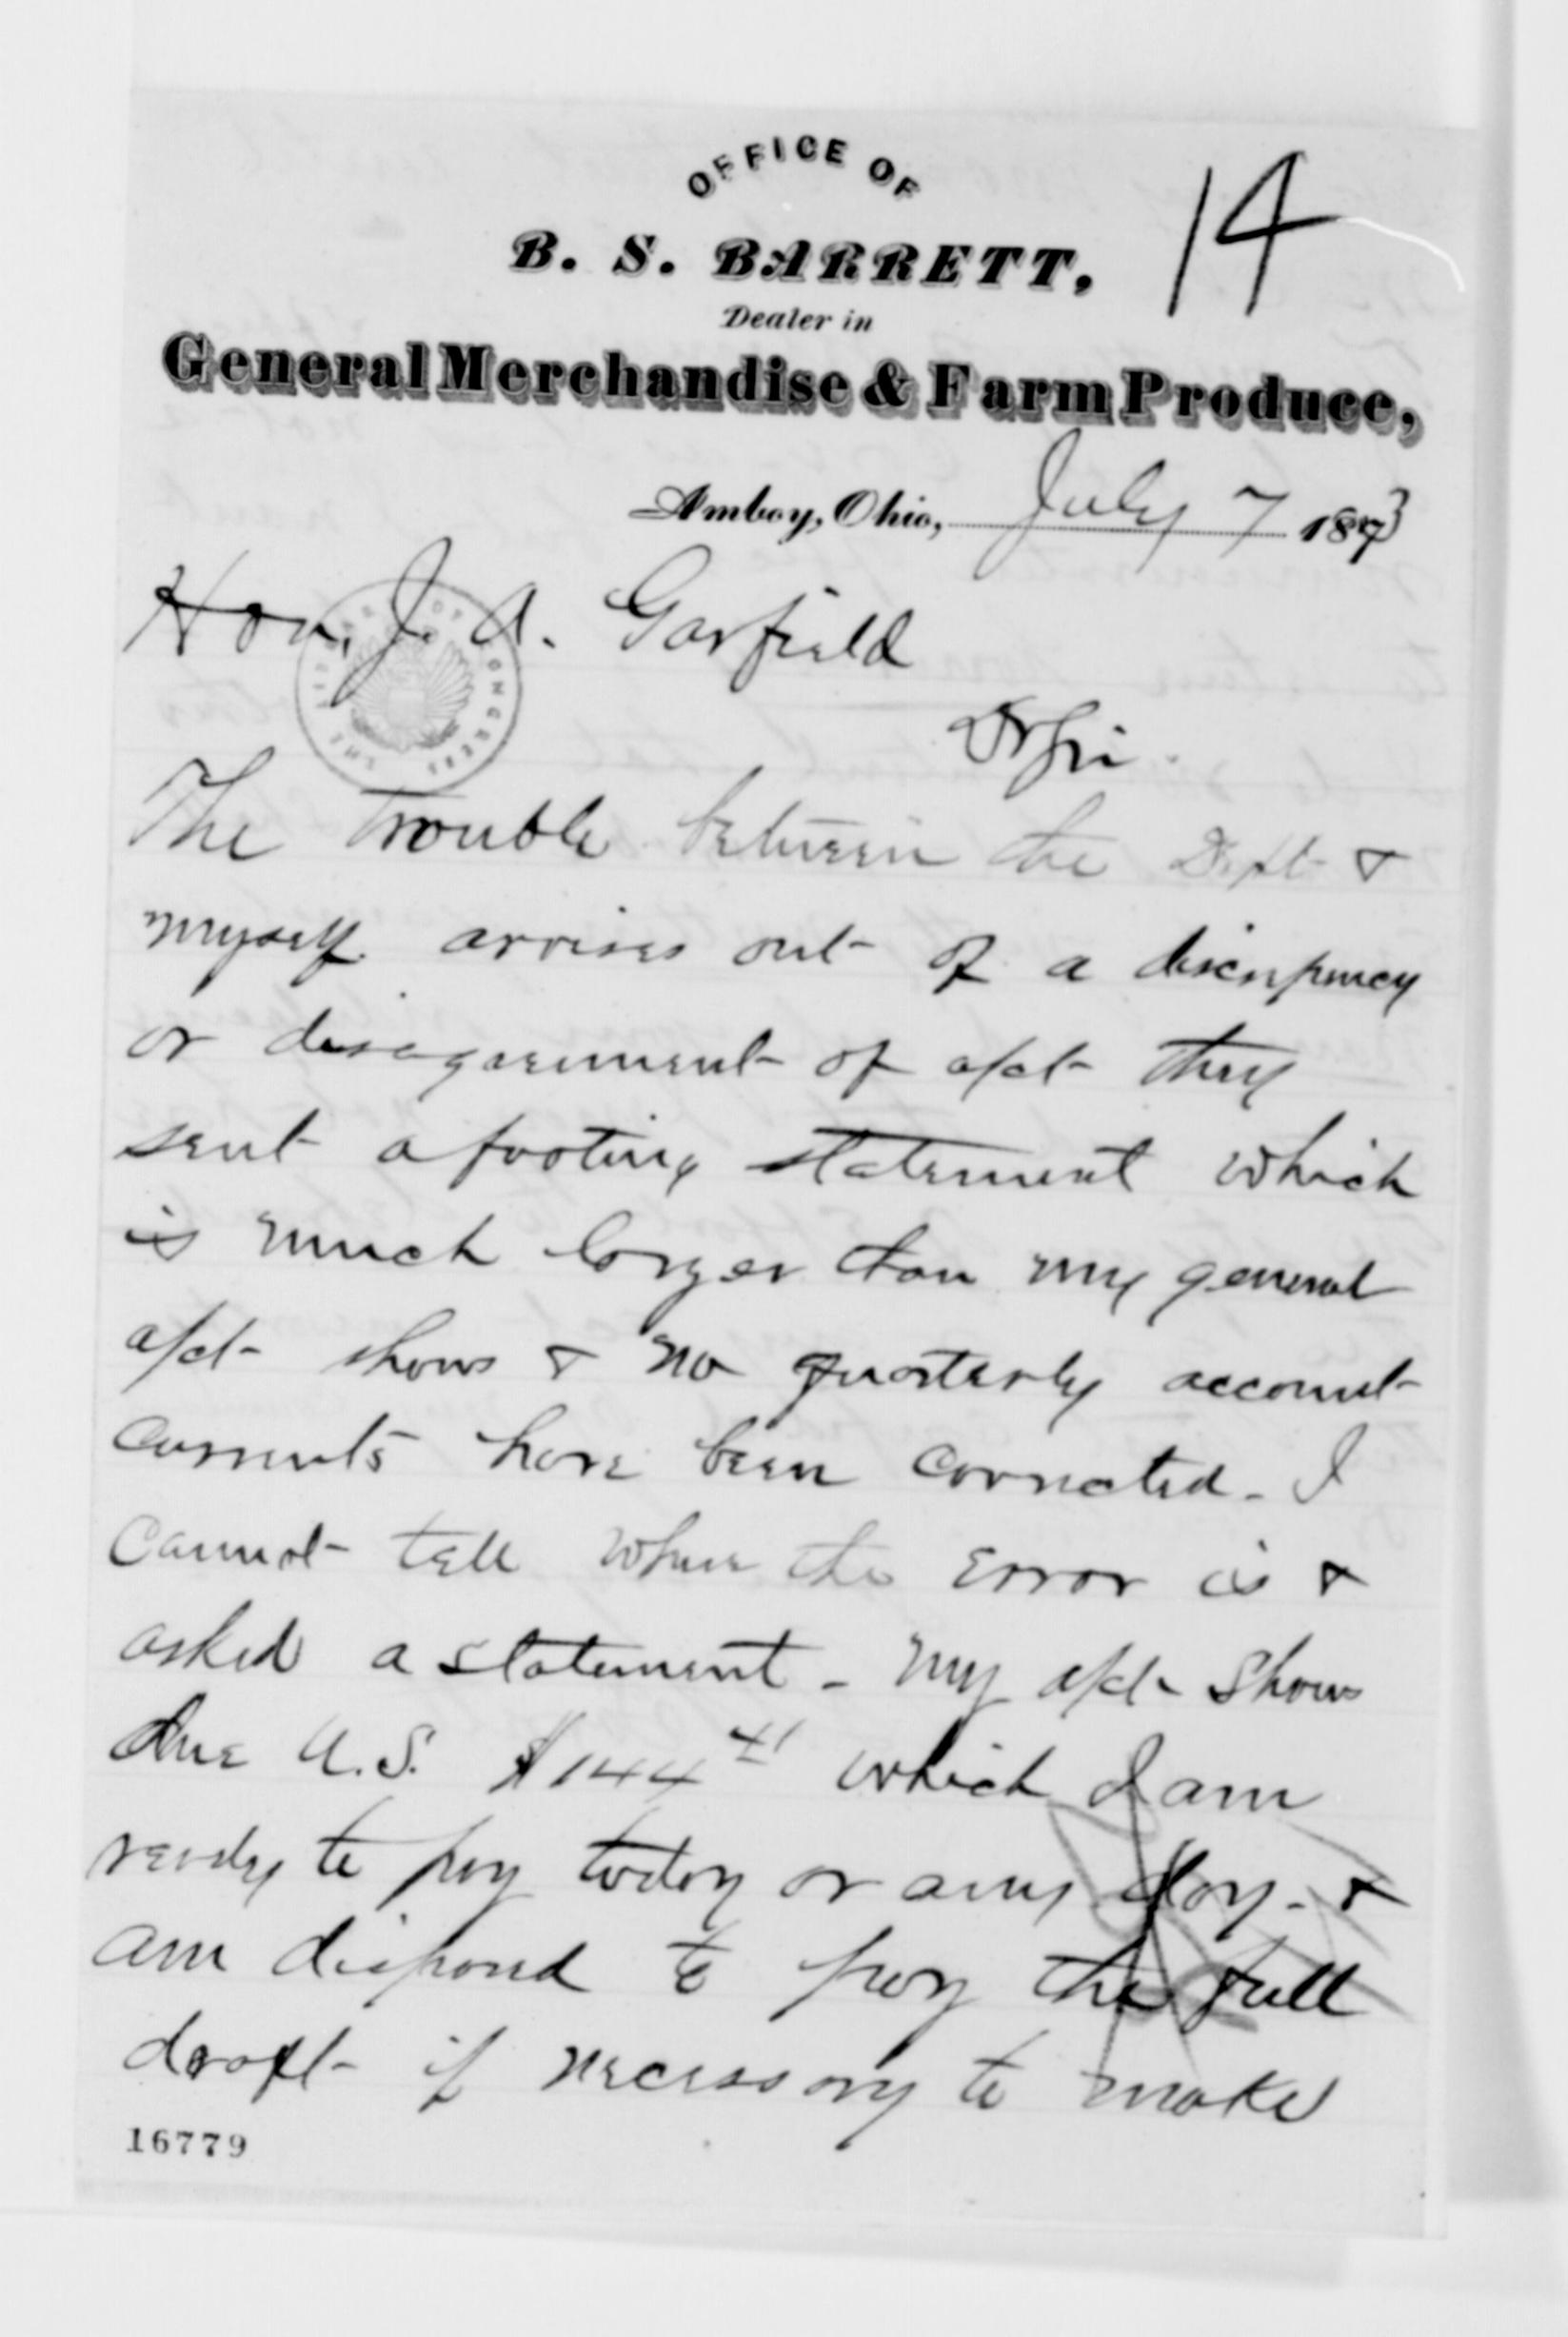 OFFICE OF
14
B. S. BARRETT,
Dealer in
General Merchandise & Farm Produce,
Amboy, Ohio, July 7 1873
Hon. J. A. Garfield
Dr Sir.
The trouble between the Dept &
myself arrises out of a discrepency
or disagreement of a/ct they
sent a footing statement which
is much larger than my general
a/ct shows & no quarterly account
currents have been corrected - I
cannot tell where the error is &
asked a statement - my a/ct shows
due U.S. $144 41 which I am
ready to pay today or any day - &
am disposed to pay the full
draft if necessary to make
16779